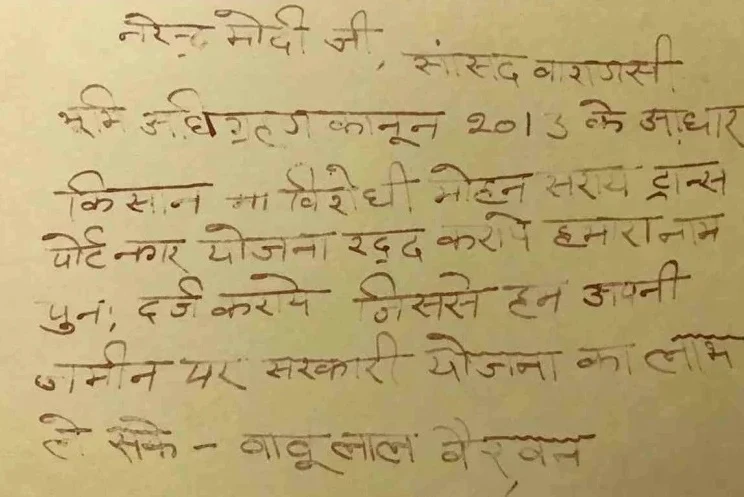 नरेन्द्र मोदी जी, सांसद वाराणसी
भूमि अधिग्रहण कानून 2013 के आधार
किसान विरोधी मोहन सराय ट्रान्स
पोर्ट नगर योजना रद्द कराये हमारा नाम
पुनः दर्ज कराये जिससे हम अपनी
जमीन पर सरकारी योजना का लाभ
ले सके - बाबू लाल